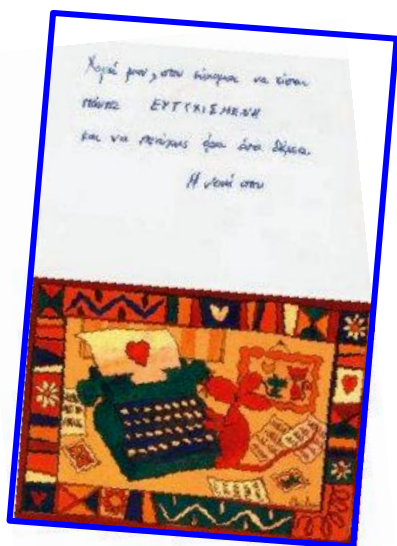 μου, σου εύχομαι να είσαι
πάντα ΕΥΤΥΧΙΣΜΕΝΗ
και να πετύχεις όσα θέλεις
Η σου